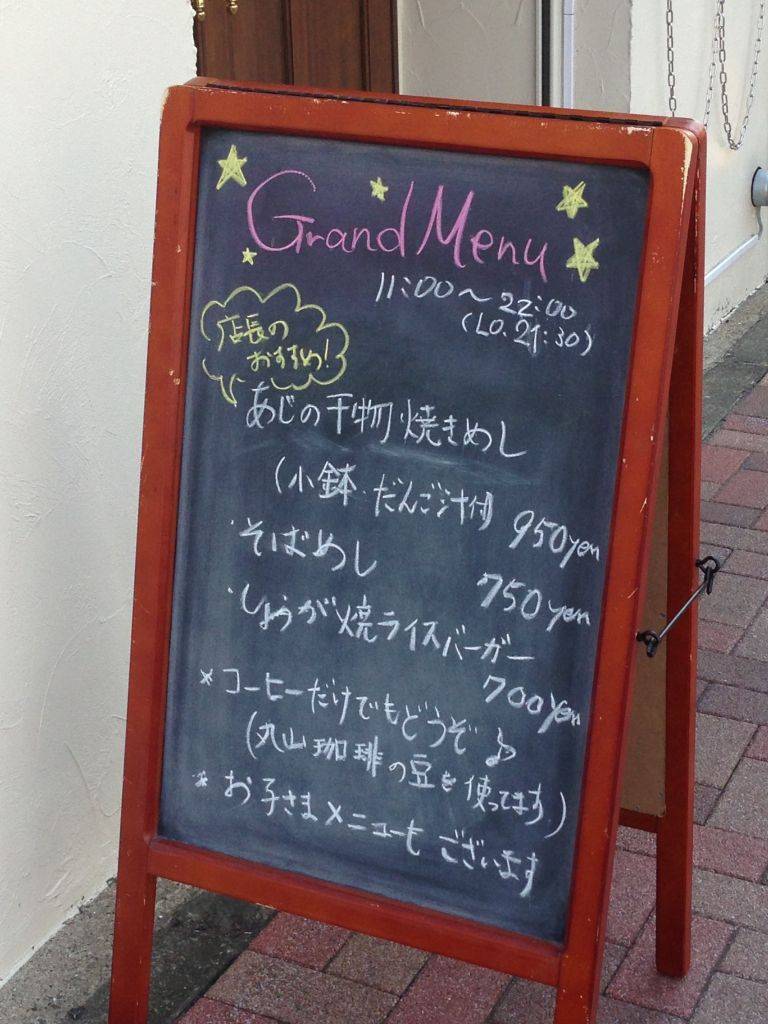 Grand Menu
11:00〜22:00
(LO.21:30)
店長の
おすすめ!
あじの干物焼きめし
(小鉢・だんご汁付 950yen
・そばめし
750yen
・しょうが焼ライスバーガー
700yen
* コーヒーだけでもどうぞ♪
(丸山珈琲の豆を使ってます)
* お子さまメニューも ございます